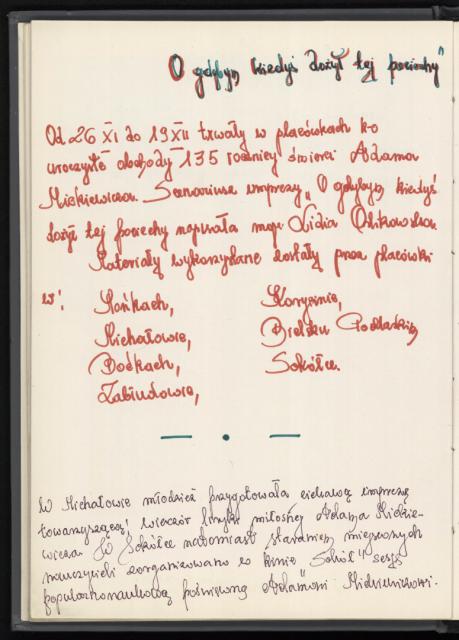 O gdybym kiedyś dożył tej pociechy"
Od 26 XI do 19 XII trwały w placówkach k-o
uroczyste obchody 135 rocznicy śmierci Adama
Mickiewicza. Scenariusz imprezy „O gdybym kiedyś
dożył tej pociechy napisała mgr Lidia
Materiały wykorzystane zostały przez placówki
w:
Mońkach,
Michałowie,
Boćkach,
Zabłudowie,
Korycinie,
Bielsku Podlaskim,
Sokółce.
W Michałowie młodzież przygotowała ciekawą imprezę
towarzyszącą: wieczór liryki miłosnej Adama Mickie-
wicza. W Sokółce natomiast staraniem miejscowych
nauczycieli zorganizowano w kinie „Sokół" sesję
popularnonaukową poświęconą Adamowi Mickiewiczowi.